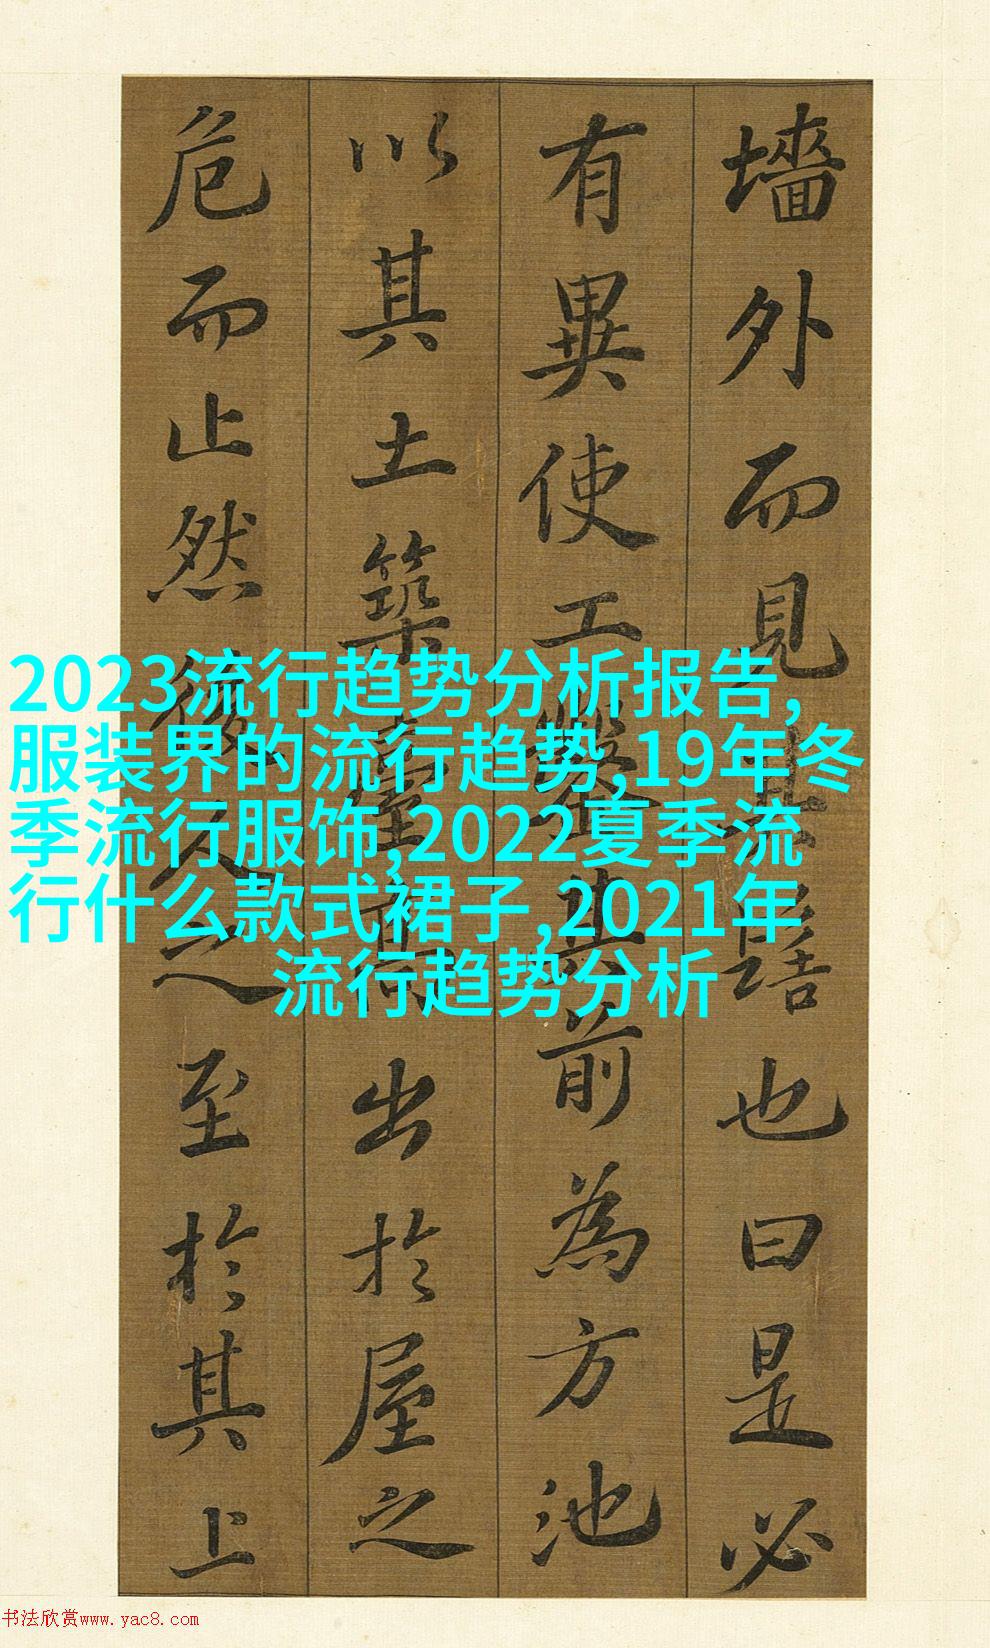 墻外而見其髻也曰是必
有異使工鑿其前為方池
以其土築臺高出於屋之
危而止然後人之至於其上
2023流行趋势分析报告,
服装界的流行趋势,19年冬
季流行服饰,2022夏季流
行什么款式裙子,2021年
流行趋势分析
书法欣赏www.yac8.com